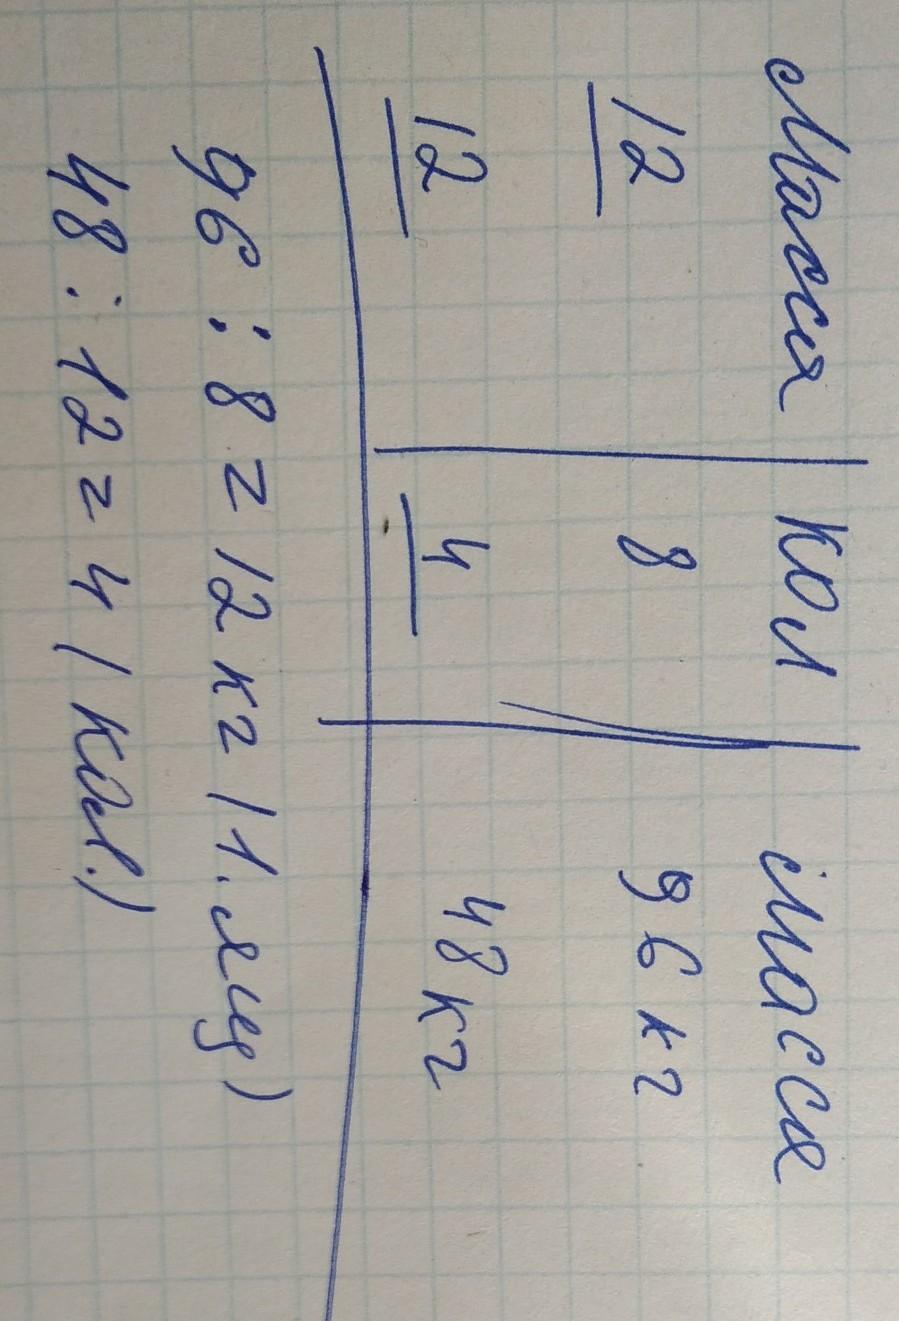 Масса Кол Масса
12 8 96 кг
12 4 48 кг
96 : 8 = 12 кг (1. ящ)
48 : 12 = 4 (Кол.)